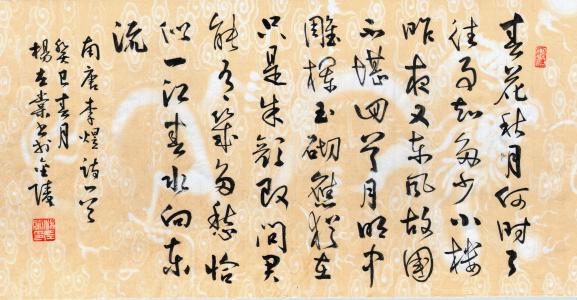 春花秋月何时了
往事知多少小楼
昨夜又东风故国
不堪回首月明中
雕栏玉砌應犹在
只是朱颜改问君
能有幾多愁恰
似一江春水向东
流
南唐李煜诗一首
癸巳春月
楊業书於金陵